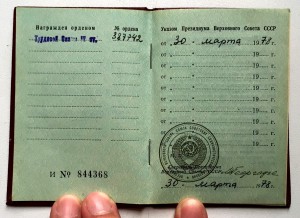 Награжден орденом
№ ордена
Трудовой Славы III ст.
327742
И № 844368
Указом Президиума Верховного Совета СССР
от „30“ марта 1978г.
от „ “ 19 г.
от „ “ 19 г.
от „ “ 19 г.
от „ “ 19 г.
от „ “ 19 г.
от „ “ 19 г.
от „ “ 19 г.
30 марта 1978г.